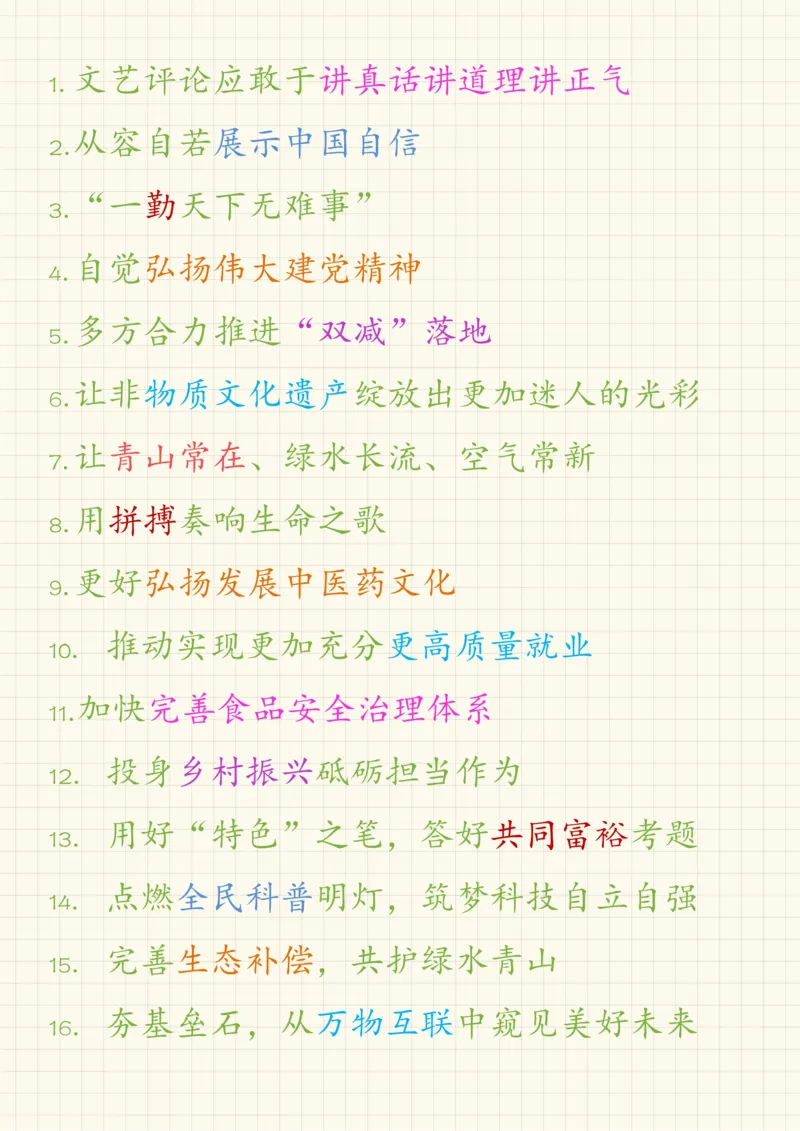 1. 文艺评论应敢于讲真话讲道理讲正气
2. 从容自若展示中国自信
3. “一勤天下无难事”
4. 自觉弘扬伟大建党精神
5. 多方合力推进“双减”落地
6. 让非物质文化遗产绽放出更加迷人的光彩
7. 让青山常在、绿水长流、空气常新
8. 用拼搏奏响生命之歌
9. 更好弘扬发展中医药文化
10. 推动实现更加充分更高质量就业
11. 加快完善食品安全治理体系
12. 投身乡村振兴砥砺担当作为
13. 用好“特色”之笔，答好共同富裕考题
14. 点燃全民科普明灯，筑梦科技自立自强
15. 完善生态补偿，共护绿水青山
16. 夯基垒石，从万物互联中窥见美好未来